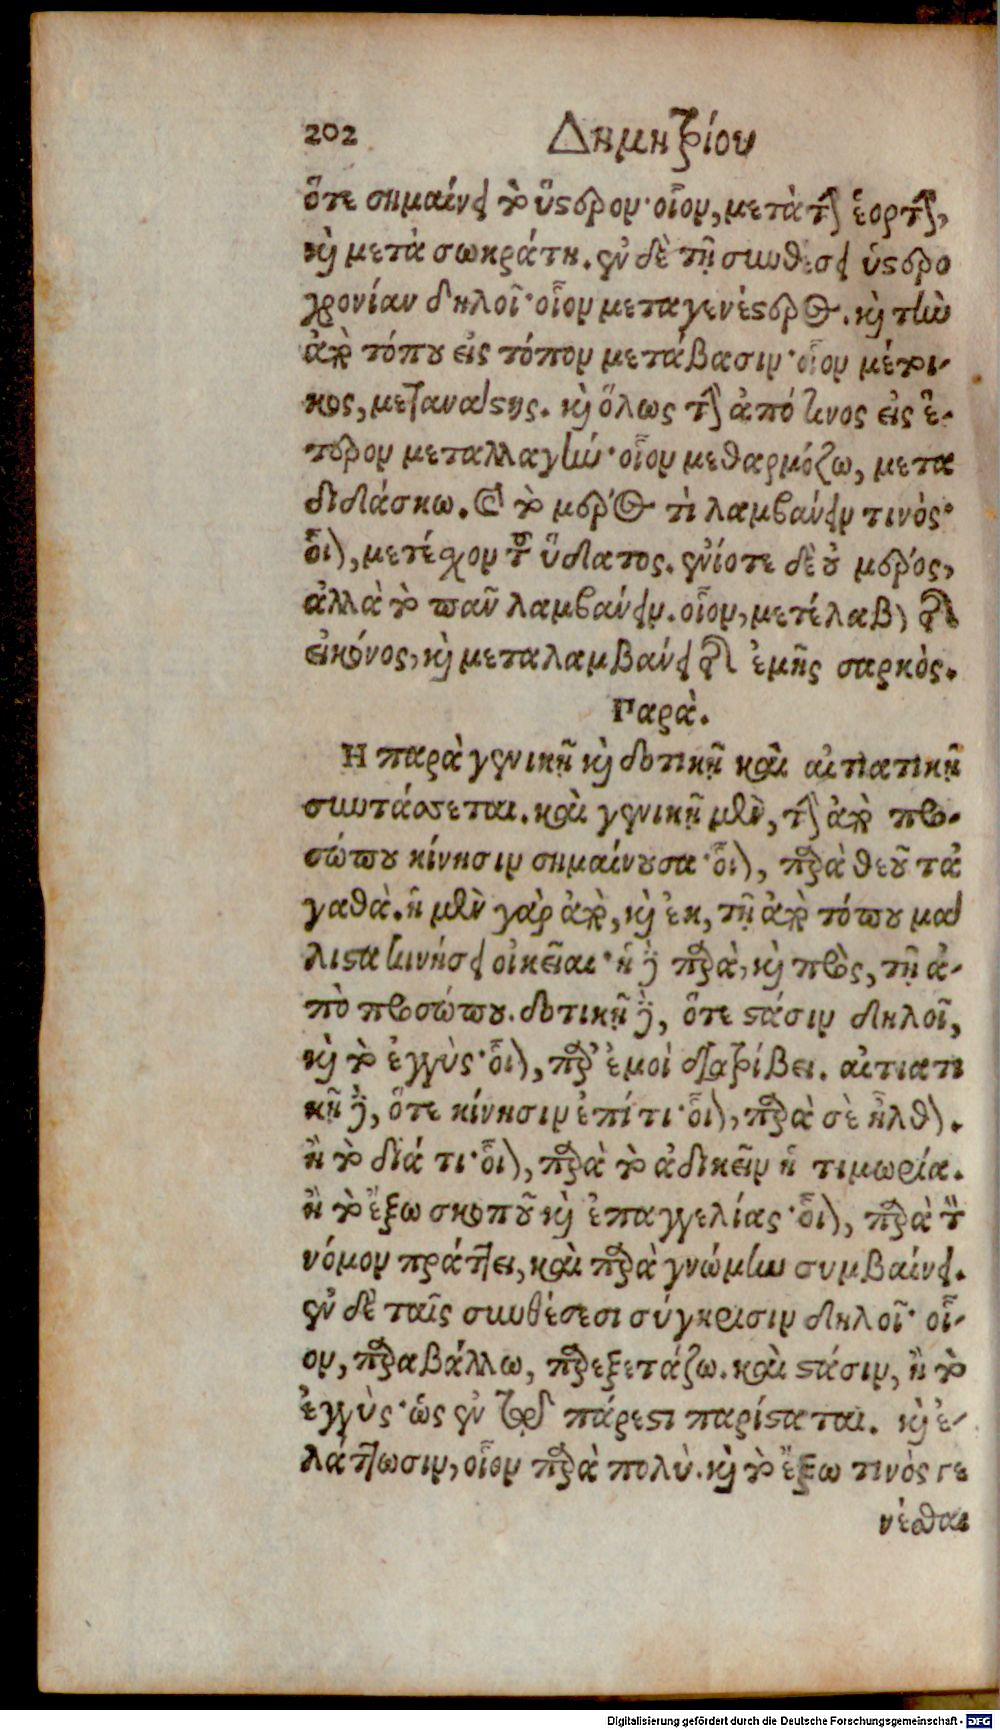 202 Δημητρίου
ὅτε σημαίνει τὸ ὕστερον· οἷον, μετὰ τὴν ἑορτὴν,
καὶ μετὰ σωκράτη. ἐν δὲ τῇ συνθέσει ὑστερο
χρονίαν δηλοῖ· οἷον μεταγενέστερος. καὶ τὴν
ἀπὸ τόπου εἰς τόπον μετάβασιν· οἷον μέτοι-
κος, μετανάστης. καὶ ὅλως τὴν ἀπό τινος εἰς ἕ-
τερον μεταλλαγὴν· οἷον μεθαρμόζω, μετα
διδάσκω. καὶ τὸ μέρος τὶ λαμβάνειν τινὸς·
οἷον, μετέχον τοῦ ὕδατος. ἐνίοτε δὲ οὐ μέρος,
ἀλλὰ τὸ πᾶν λαμβάνειν. οἷον, μετέλαβον τῆς
εἰκόνος, καὶ μεταλαμβάνει τῆς ἐμῆς σαρκὸς.
Παρὰ.
Η παρὰ γενικῇ καὶ δοτικῇ καὶ αἰτιατικῇ
συντάσσεται. καὶ γενικῇ μὲν, τὴν ἀπὸ προ-
σώπου κίνησιν σημαίνουσα· οἷον, παρὰ θεοῦ τἀ
γαθὰ. ἡ μὲν γὰρ ἀπὸ, καὶ ἐκ, τῇ ἀπὸ τόπου μά
λιστα κινήσει οἰκεῖαι· ἡ δὲ παρὰ, καὶ πρὸς, τῇ ἀ-
πὸ προσώπου. δοτικῇ δὲ, ὅτε στάσιν δηλοῖ,
καὶ τὸ ἐγγὺς· οἷον, παρ' ἐμοὶ διατρίβει. αἰτιατι
κῇ δὲ, ὅτε κίνησιν ἐπί τι· οἷον, παρὰ σὲ ἦλθον.
ἢ τὸ διά τι· οἷον, παρὰ τὸ ἀδικεῖν ἡ τιμωρία.
ἢ τὸ ἔξω σκοποῦ καὶ ἐπαγγελίας· οἷον, παρὰ τὸν
νόμον πράττει, καὶ παρὰ γνώμην συμβαίνει.
ἐν δὲ ταῖς συνθέσεσι σύγκρισιν δηλοῖ· οἷ-
ον, παραβάλλω, παρεξετάζω. καὶ στάσιν, ἢ τὸ
ἐγγὺς· ὡς ἐν τῷ πάρεστι παρίσταται. καὶ ἐ-
λάττωσιν, οἷον παρὰ πολὺ. καὶ τὸ ἔξω τινὸς γε
νέσθαι
Digitalisierung gefördert durch die Deutsche Forschungsgemeinschaft - DFG